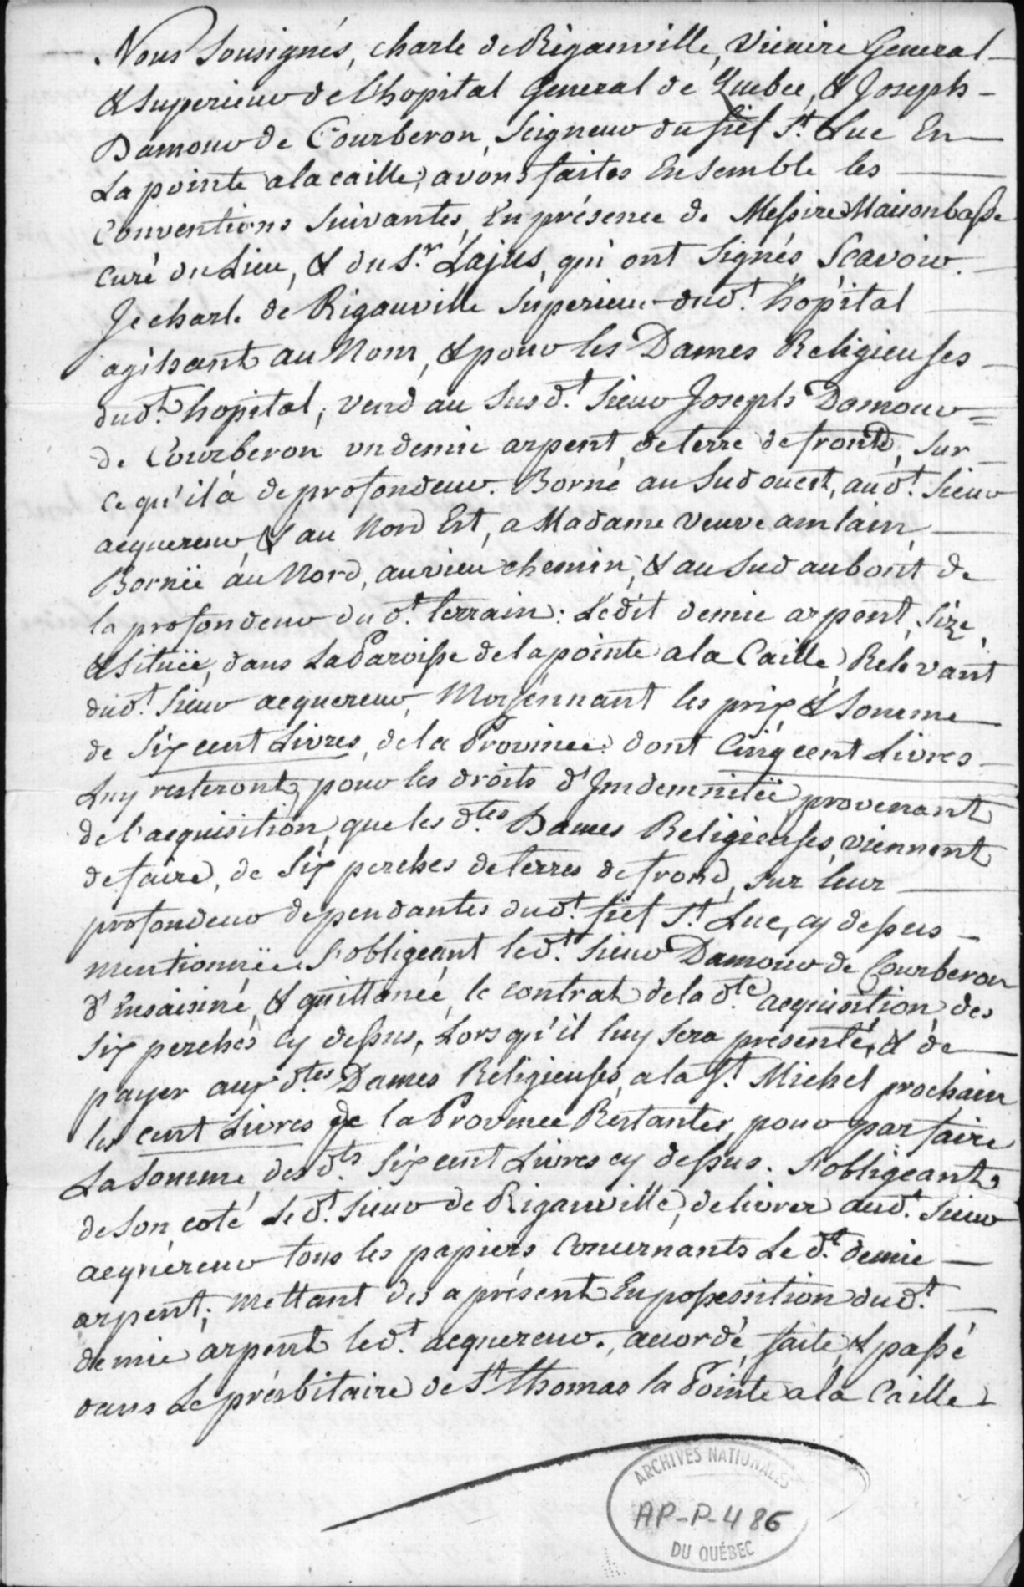 Nous Sousignés, charle de Rigauville, Vicaire General
& Superieur de l'hopital General de Quebec, & Joseph
Damour de Courberon, Seigneur du fief St. Luc En
La pointe a la caille, avons faites Ensemble les
Conventions Suivantes, En présence de Messire Maisonbasse
curé du Lieu, & du Sr. Lajus, qui ont Signés Scavoir.
Je charle de Rigauville Superieur dudt. hôpital
agissant au Nom, & pour les Dames Religieuses
dudt. hopital, vend au Susdt. Sieur Joseph Damour =
de Courberon un demie arpent de terre de frond, Sur
ce qu'il à de profondeur. Borné au Sud ouest, audt. Sieur
acquereur, & au Nord Est, a Madame Veuve amlain,
Bornëe au Nord, au vieu chemin, & au Sud au bout de
la profondeur dudt. terrain: Ledit demie arpent, Size
& Situëe, dans La Paroisse de la pointe a la Caille, Relevant
dudt. Sieur acquereur, Moyennant les prix & Somme
de Six cent Livres, de la Province: dont Cinq cent Livres
Luy resteront, pour les droits d'Imdemnitëe provenant
de l'acquisition, que les dtes Dames Religieuses, viennent
de faire, de Six perches de terres de frond, Sur leur
profondeur dependantes dudt. fief St. Luc, cy dessus
mentionnëe. S'obligeant ledt. Sieur Damour de Courberon
d'Ensaisiné, & quittancé, le contrat de la dte acquisition des
Six perches cy dessus, Lors qu'il luy Sera présenté, & de
payer aux dtes Dames Religieuses, a la St. Michel prochain
les cent Livres de la Province Restantes, pour parfaire
La Somme, des dts Six cent Livres cy dessus. S'obligeant,
de Son coté Le dt. Sieur de Rigauville, de livrer audt. Sieur
acquéreur tous les papiers Concernants Le dt. demie
arpent; mettant des a présent En possession dudt.
demie arpent ledt. acquereur. accordé, faite, & passé
dans Le présbitaire de St. Thomas la Pointe a la Caille
ARCHIVES NATIONALES
AP-P-486
DU QUÉBEC